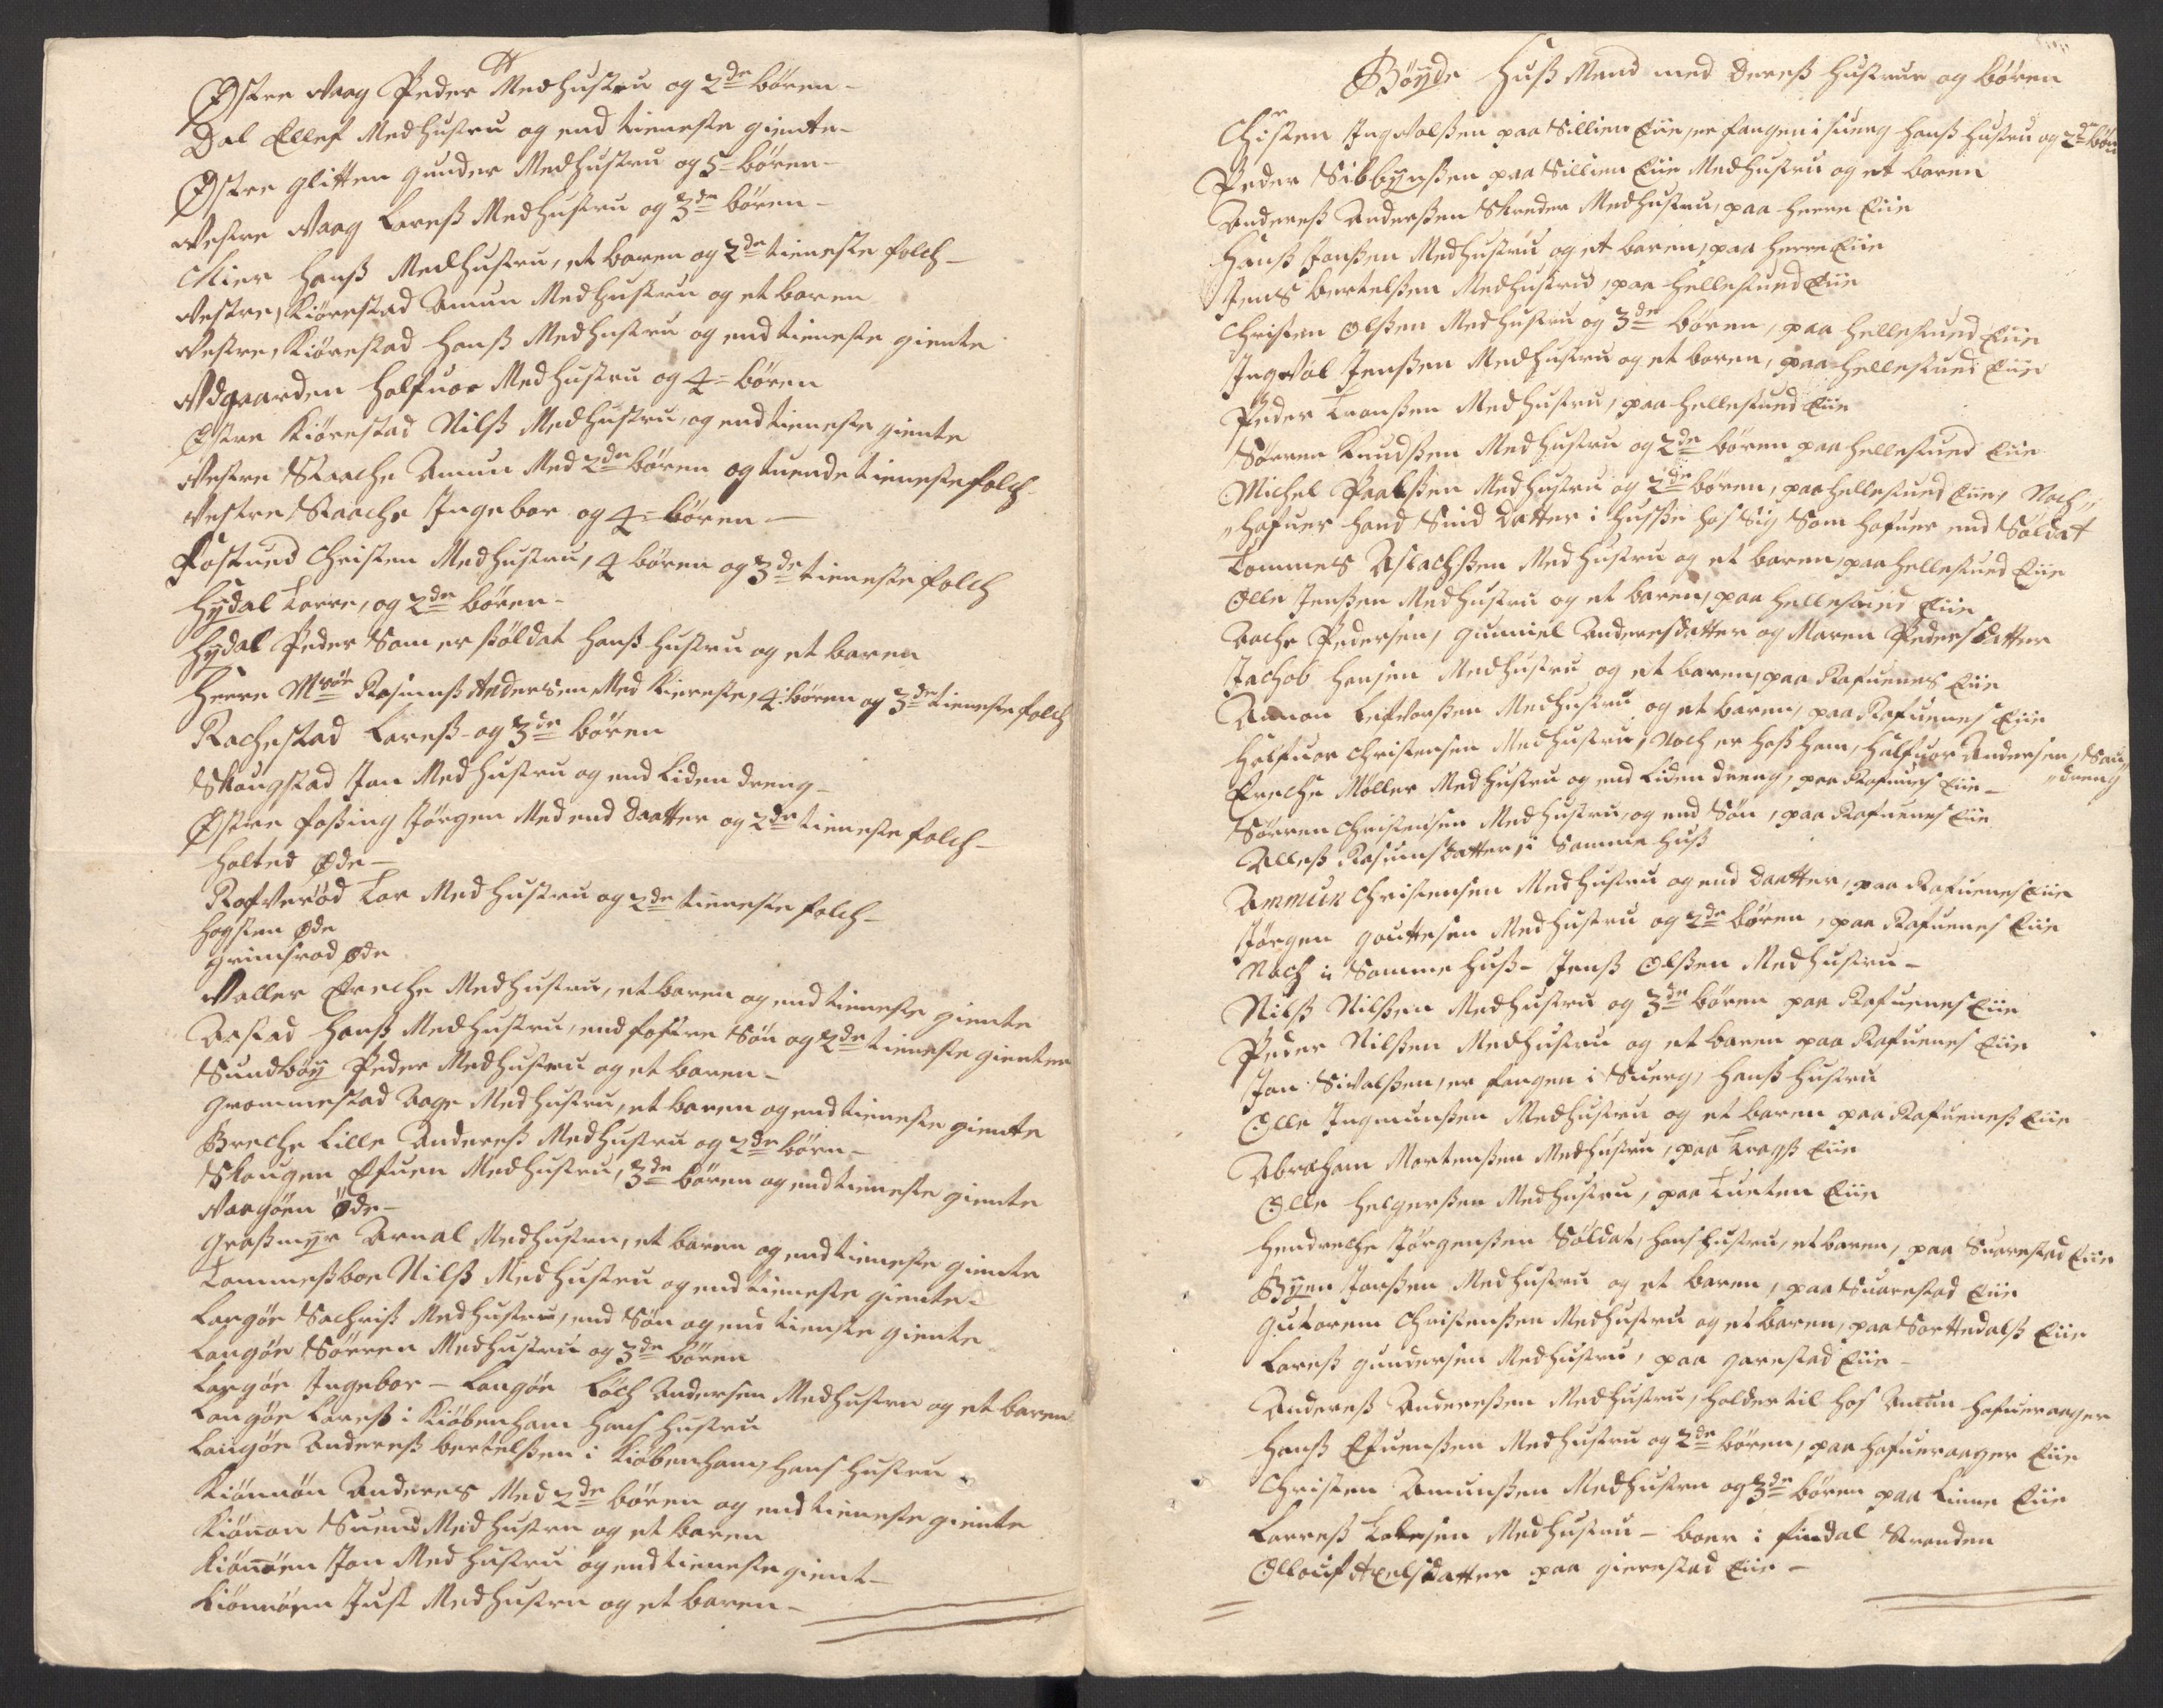 Østre Waag Peder Medhustru og 2de børen-
Dal Ellef Medhustru og end tieneste giente-
Østre glitten gunder Medhustru og 5- børen-
Westre Waag Lareß Medhustru og 3de børen-
Mier Hanß Medhustru, et baren og 2de tieneste folch-
Westre, Kiörestad Amun Medhustru og et baren
Westre, Kiörestad Hanß Medhustru og end tieneste giente
Widgaarden Halfuor Medhustru og 4- børen
Østre Kiörestad Nilß Medhustru, og end tieneste giente
Westre Staache Amun Med 2de børen og tuende tieneste folch-
Westre Staache Ingebor og 4- børen-
Fostued Christen Medhustru, 4 børen og 3de tieneste folch
Hÿdal Torre, og 2de børen-
Hÿdal Peder Som er söldat Hanß hustru og et baren
Herre Msör Rasmuß Andersen Med Kiereste, 4: børen og 3de tieneste folch
Rachestad Lareß- og 3de børen
Skougstad Jon Medhustru og end Liden dreng-
Østre foßing Jörgen Med end Daatter og 2de tieneste folch-
Holted Øde-
Rafverød Tor Medhustru og 2de tieneste folch-
Hogsten Øde
Grimsrød Øde
Waller Ereche Medhustru, et baren og end tieneste giente
Aastad Hanß Medhustru, end fostre Søn og 2de tieneste gienter
Sundbøÿ Peder Medhustru og et baren-
Grommestad Aage Medhustru, et baren og end tieneste giente
Breche Lille Andereß Medhustru og 2de børn-
Skougen Efuen Medhustru, 3de børen og end tieneste giente
Waagöen Øde-
Graßmÿr Arnal Medhustru, et baren og end tieneste giente
Tommeßboe Nilß Medhustru og end tieneste giente-
Langöe Sachriß Medhustru, end Søn og end tienste giente
Langöe Sörren Medhustru og 3de børen
Langöe Ingebor- Langöe Löch Andersen Medhustru og et baren
Langöe Lareß i Kiøbenham Hans hustru
Langöe Andereß bertelßen i Kiøbenham, Hans hustru
Kiönnön Anderes Med 2de børen og end tieneste giente
Kiönnön Suend Medhustru og et baren
Kiönnöen Jon Medhustru og end tieneste gient-
Kiönnöen Just Medhustru og et baren-
Böyde Huß Mend med Dereß hustrue og børen
Christen Ingvolßen paa Sillien Eiie, er fangen i Suerg Hanß hustru og 2de børn
Peder Sibbÿnßen paa Sillien Eiie Medhustru og et baren
Andereß Anderßen Skreder Medhustru, paa Herre Eiie
Hanß Jonßen Medhustru og et baren, paa Herre Eiie
Jens bertelßen Medhustru, paa Hellestued Eiie
Christen Olßen Medhustru og 3de børen, paa Hellestued Eiie
Ingval Jenßen Medhustru og et baren, paa Hellestued Eiie
Peder Tronßen Medhustru, paa Hellestued Eiie
Sörren Knudßen Medhustru og 2de børen paa Hellestued Eiie
Michel Paalßen Medhustru og 2de børen, paa Hellestued Eiie, Noch„
„Hafuer Hand Sind Datter i husse hos Sig Som Hafuer end Söldat
Tommes Aslachßen Medhustru og et baren, paa Hellestued Eiie
Olle Jenßen Medhustru og et baren, paa Hellestued Eiie
Aache Pedersen, Gunniel Andersdatter og Maren Pedersdatter
Jachob Hansen Medhustru og et baren, paa Rafuenes Eiie
Aamon Leifvorßen Medhustru og et baren, paa Rafuenes Eiie
Halfuor Christensen Medhustru, Noch er hoß ham, Halfuor Andersen, Sau„
Ereche Möller Medhustru og end Liden dreng, paa Rafuenes Eiie- „dreng
Sörren Christensen Medhustru, og end Søn, paa Rafuenes Eiie
Alleß Rasmusdatter, i Samme huß
Ammun Christensen Medhustru og end Daatter, paa Rafuenes Eiie
Jörgen gouttesen Medhustru og 2de børen, paa Rafuenes Eiie
Noch i Samme huß- Jenß Olßen Medhustru-
Nilß Nilßen Medhustru og 3de børen paa Rafuenes Eiie
Peder Nilßen Medhustru og et baren paa Rafuenes Eiie
Jon Sivalßen, er fangen i Suerg, Hanß hustru
Olle Ingmunßen Medhustru og et baren paa Rafueneß Eiie
Abraham Mortenßen Medhustru, paa Kragß Eiie
Olle Helgerßen Medhustru, paa Tueten Eiie
Hendreche Jörgenßen Söldat, Hans hustru, et baren, paa Suarestad Eiie
Byen Jonßen Medhustru og et baren, paa Suarestad Eiie
Gutorem Christenßen Medhustru og et baren, paa Sorttedalß Eiie
Lareß Gundersen Medhustru, paa Garestad Eiie-
Andereß Andereßen Medhustru, Holder til hos Amun Hafueraager
Hanß Efuenßen Medhustru og 2de børen, paa Hafueraager Eiie
Christen Amunßen Medhustru og 3de børen paa Linne Eiie
Larreß Tolesen Medhustru- boer i findal Stranden
Ollouf Axelsdatter paa gierestad Eiie-